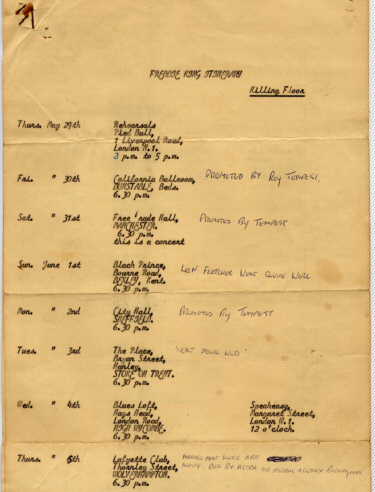 FREDDIE KING ITINERARY
Killing Floor
Thurs. May 29th Rehearsals
Pied Bull,
1 Liverpool Road,
London N.1.
3 p.m. to 5 p.m.
Fri. " 30th California Ballroom, PROMOTED BY ROY TEMPEST.
DUNSTABLE, Beds.
6.30 p.m.
Sat. " 31st Free Trade Hall, PROMOTED BY TEMPEST
MANCHESTER.
6.30 p.m.
this is a concert
Sun. June 1st Black Prince,
Bourne Road,
BEXLEY, Kent.
6.30 p.m.
Mon. " 2nd City Hall, PROMOTED BY TEMPEST
SHEFFIELD.
6.30 p.m.
Tues. " 3rd The Place,
Bryan Street,
Hanley,
STOKE ON TRENT.
6.30 p.m.
Wed. " 4th Blues Loft, Speakeasy,
Nags Head, Margaret Street,
London Road, London W.1.
HIGH WYCOMBE. 12 o'clock.
6.30 p.m.
Thurs. " 5th Lafayette Club,
Thornley Street,
WOLVERHAMPTON.
6.30 p.m.